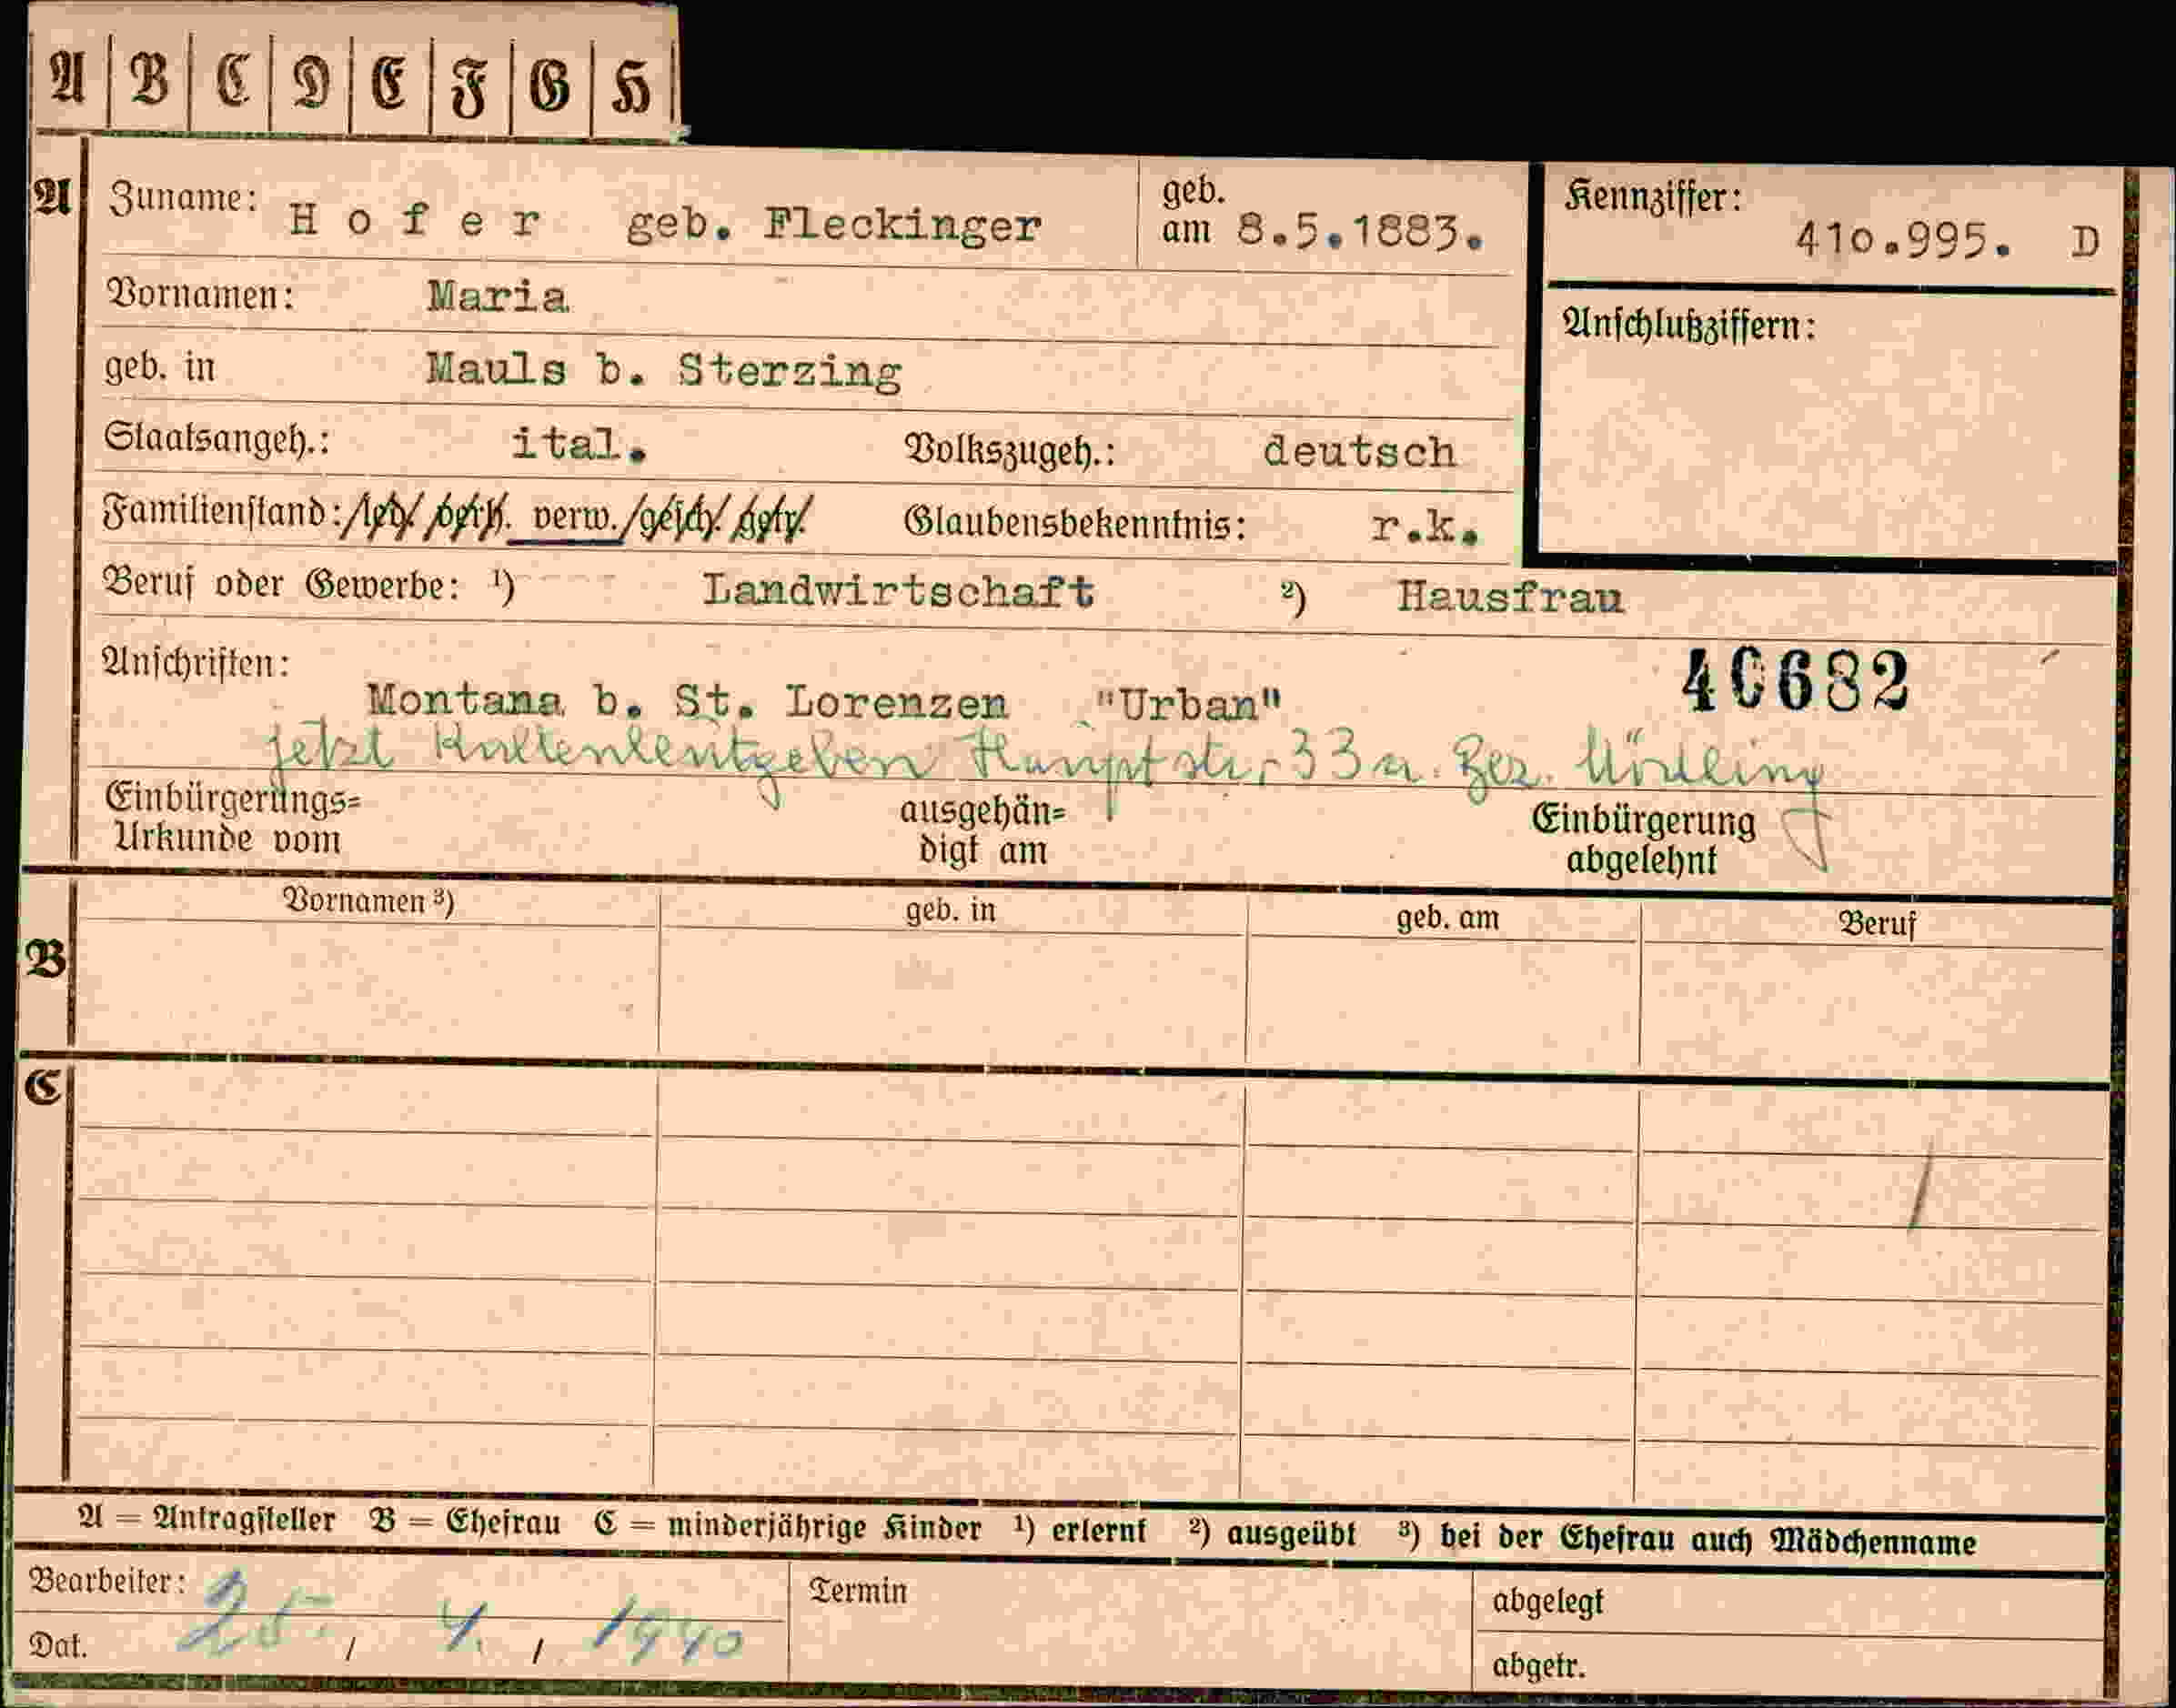 A B C D E F G H
A Zuname: Hofer geb. Fleckinger geb. am 8.5.1883. Kennziffer: 410.995. D
Vornamen: Maria
Anschlußziffern:
geb. in Mauls b. Sterzing
Staatsangeh.: ital. Volkszugeh.: deutsch
Familienstand: led. verh. verw. gesch. getr. Glaubensbekenntnis: r.k.
Beruf oder Gewerbe: ¹) Landwirtschaft ²) Hausfrau
Anschriften: 40682
Montana b. St. Lorenzen "Urban"
jetzt Kaltenleutgeben Hauptstr. 33a. Bez. Mödling
Einbürgerungs= ausgehän= Einbürgerung
Urkunde vom digt am abgelehnt
Vornamen ³) geb. in geb. am Beruf
B
C
A = Antragsteller B = Ehefrau C = minderjährige Kinder ¹) erlernt ²) ausgeübt ³) bei der Ehefrau auch Mädchenname
Bearbeiter: Termin abgelegt
Dat. 25. / 4. / 1940 abgetr.